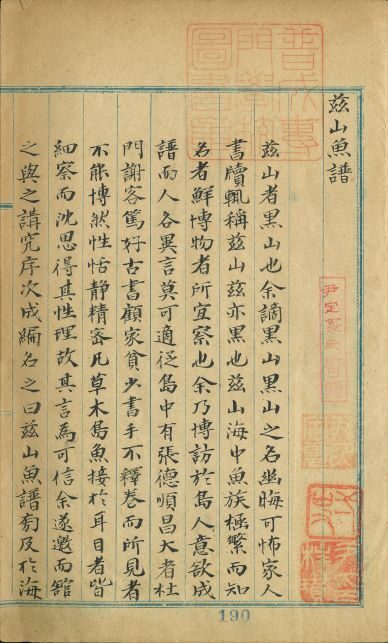 玆山魚譜
玆山者黑山也余謫黑山黑山之名幽晦可怖家人
書牘輒稱玆山玆亦黑也玆山海中魚族極繁而知
名者鮮博物者所宜察也余乃博訪於島人意欲成
譜而人各異言莫可適從島中有張德順昌大者杜
門謝客篤好古書顧家貧少書手不釋卷而所見者
不能博然性恬靜精密凡草木鳥魚接於耳目者皆
細察而沈思得其性理故其言爲可信余遂邀而館
之與之講究序次成編名之曰玆山魚譜旁及於海
190